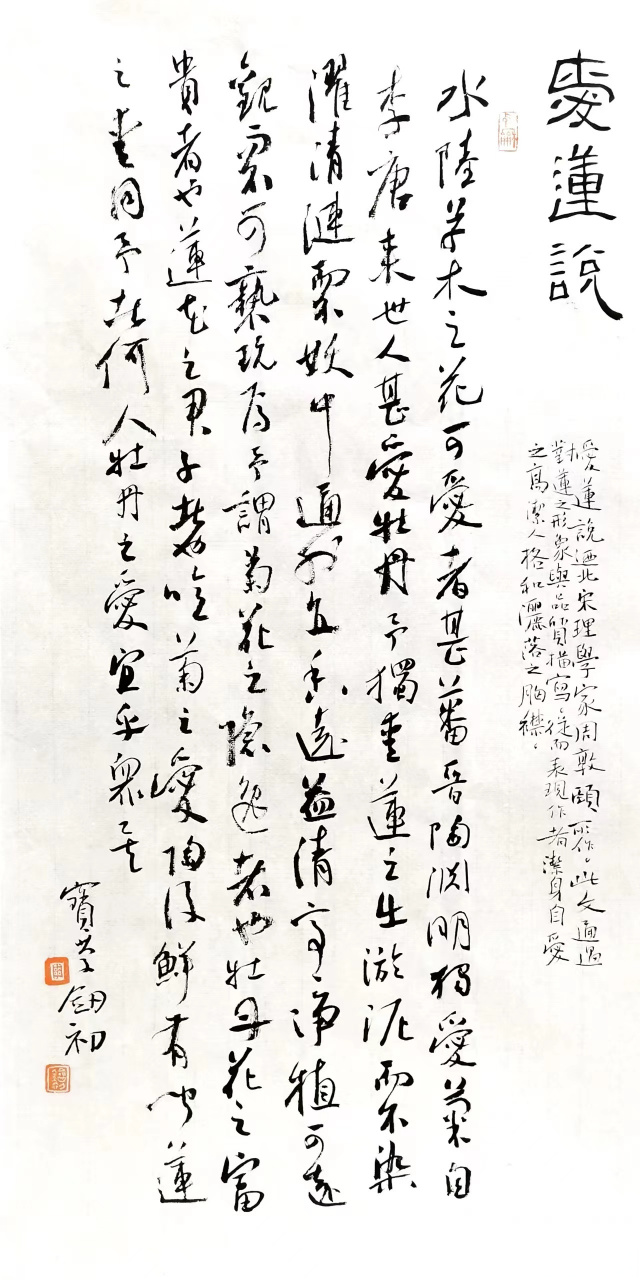 愛蓮說
愛蓮說迺北宋理學家周敦頤所作。此文通過
對蓮之形象與品質描寫從而表現作者潔身自愛
之高潔人格和灑落之胸襟。
水陸草木之花可愛者甚蕃晉陶渊明獨愛菊自
李唐來世人甚愛牡丹予獨愛蓮之出淤泥而不染
濯清漣而不妖中通外直香遠益清亭亭淨植可遠
觀而不可褻玩焉予謂菊花之隱逸者也牡丹花之富
貴者也蓮花之君子者也噫菊之愛陶後鮮有聞蓮
之愛同予者何人牡丹之愛宜乎衆矣
寶 釰初